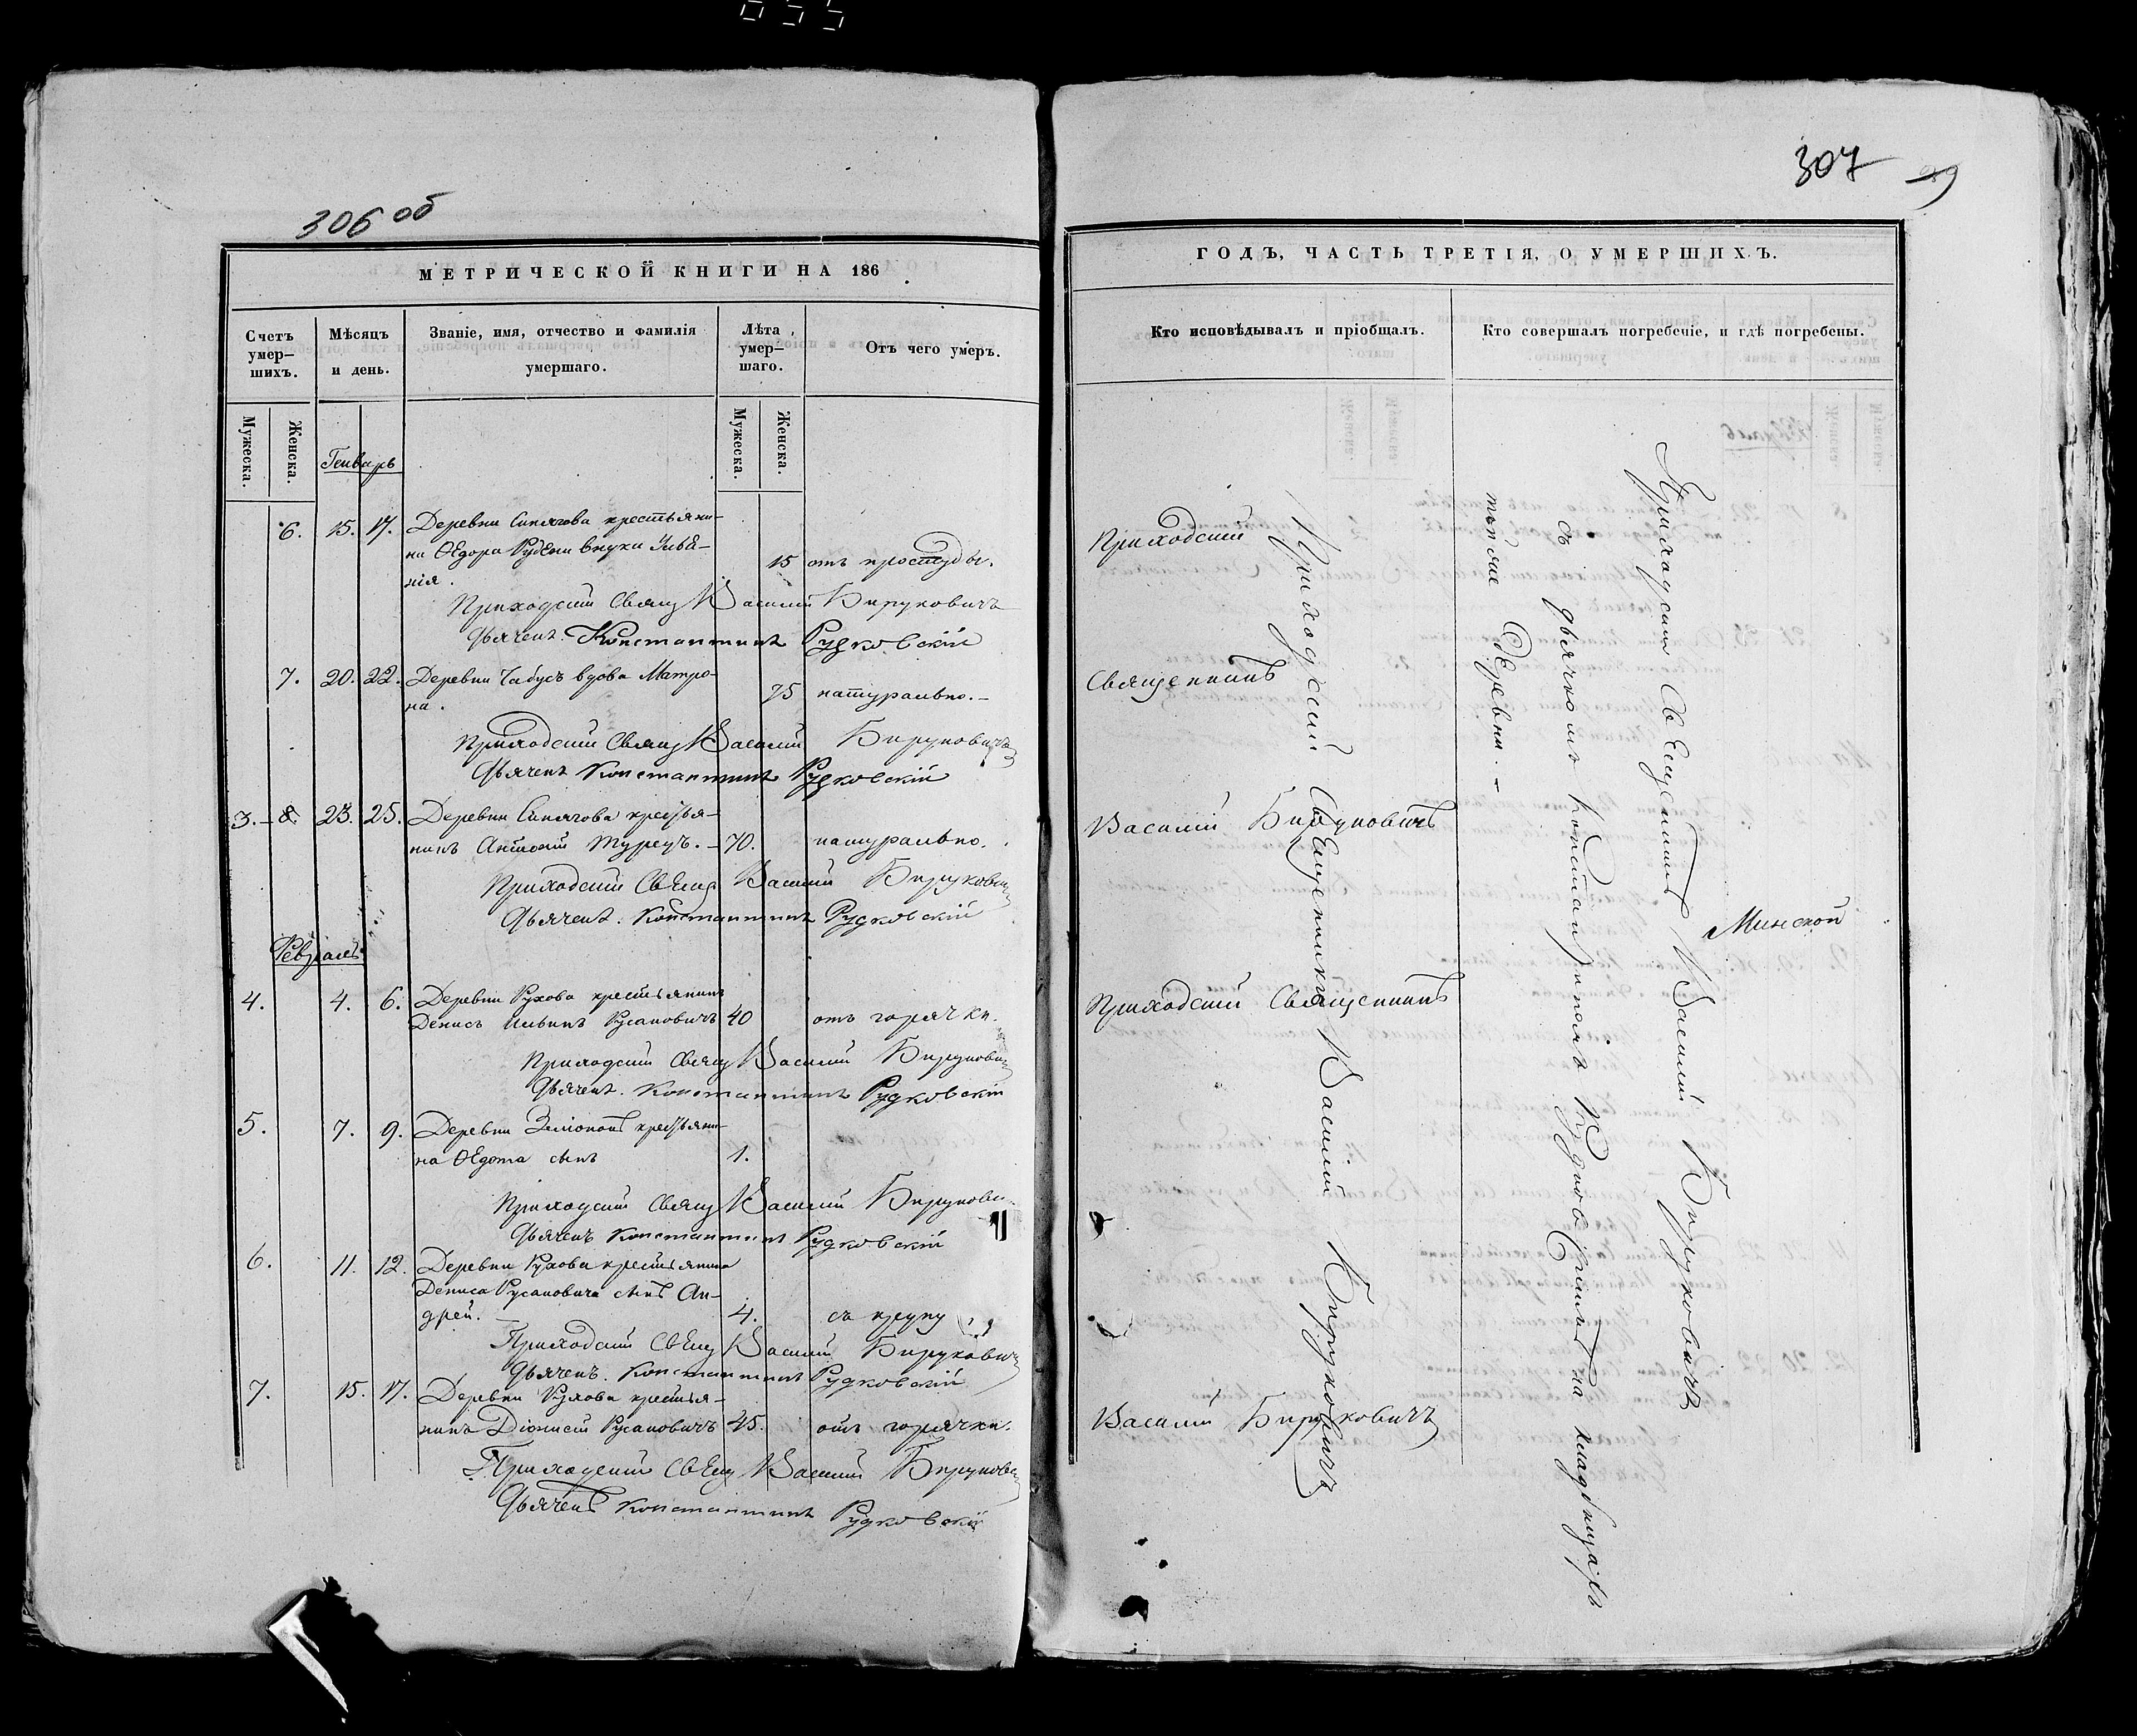 306 об
МЕТРИЧЕСКОЙ КНИГИ НА 186
Счетъ умер-шихъ.
Мѣсяцъ и день.
Званіе, имя, отчество и фамилія умершаго.
Лѣта умер-шаго.
Отъ чего умеръ.
Мужеска.
Женска.
Мужеска.
Женска.
Генварь
6. 15. 17. Деревни Синягова крестьяни-
на Ѳедора внука
нія. 15 отъ простуды.
Приходскій Свящ Василій Бируковичъ
Дьячекъ Константинъ Рудковскій
7. 20. 22. Деревни Чабусъ вдова Матро-
на. 75 натурально.-
Приходскій Свящ Василій Бируковичъ
Дьячекъ Константинъ Рудковскій
3. - 8. 23. 25. Деревни Синягова крестья-
нинъ Антоній Турецъ. - 70. натурально.
Приходскій Свящ Василій Бируковичъ
Дьячекъ. Константинъ Рудковскій
Февраль
4. 4. 6. Деревни Рухова крестьянинъ
Денисъ Ильинъ Русановичъ 40 отъ горячки.
Приходскій Свящ Василій Бирукович
Дьячекъ. Константинъ Рудковскій
5. 7. 9. Деревни крестьяни-
на Ѳедота сынъ 1.
Приходскій Свящ Василій Бирукови
Дьячекъ Константинъ Рудковскій
6. 11. 12. Деревни Рухова крестьянина
Дениса Русановича сынъ Ан-
дрей. 4. съ крупу
Приходскій Свящ Василій Бируковичъ
Дьячекъ. Константинъ Рудковскій
7. 15. 17. Деревни Рухова крестья-
нинъ Діонисій Русановичъ 45. отъ горячки.
Приходскій Свящ Василій Бирукович
Дьячекъ Константинъ Рудковскій
307
ГОДЪ, ЧАСТЬ ТРЕТІЯ, О УМЕРШИХЪ.
Кто исповѣдывалъ и пріобщалъ.
Кто совершалъ погребеніе, и гдѣ погребены.
Приходскій
Священникъ
Василій Бируковичъ
Приходскій Священникъ
Василій Бируковичъ
Приходскій Священникъ Василій Бируковичъ
Приходскій Священникъ Василій Бируковичъ
съ дьячкомъ Константиномъ Рудковскимъ на кладбищахъ
тойже Деревни. -
Минской